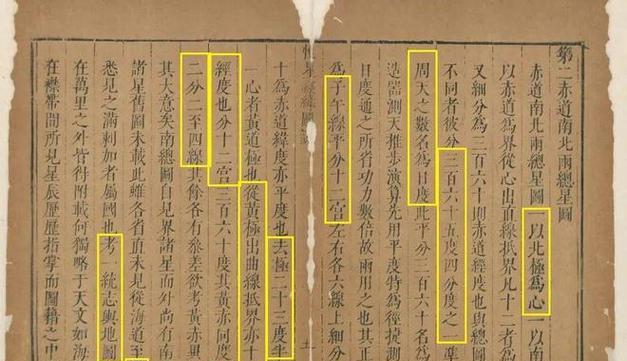 第二赤道南北兩總星圖
赤道南北兩總星圖一以北極爲心一以南
以赤道爲界從心出直線抵界凡十二者爲
又細分爲三百六十則赤道經度也與總圖
不同者彼分三百六十五度四分度之一準
周天之數名爲日度此平分三百六十名爲
造器測天推步演算先用平度特爲徑捷測
日度通之所省功力數倍故兩用之也其正
爲子午線平分十二宮左右各六線上細分
十爲赤道緯度亦平度也去極二十三度半
心者黃道極也從黃極出曲線抵界亦十
經度也分十二宮三百六十度其黃赤同度
二分二至四線其餘各有參差欲考黃赤異
其大意矣南總圖自見界諸星而外尚有南
諸星舊圖未載此雖各省直未見從海道
悉見之滿剌加者屬國也考一統志輿地圖
在萬里之外皆得附載何獨略于天文如海
在襟帶間所見星辰歷歷指掌而圖籍之中